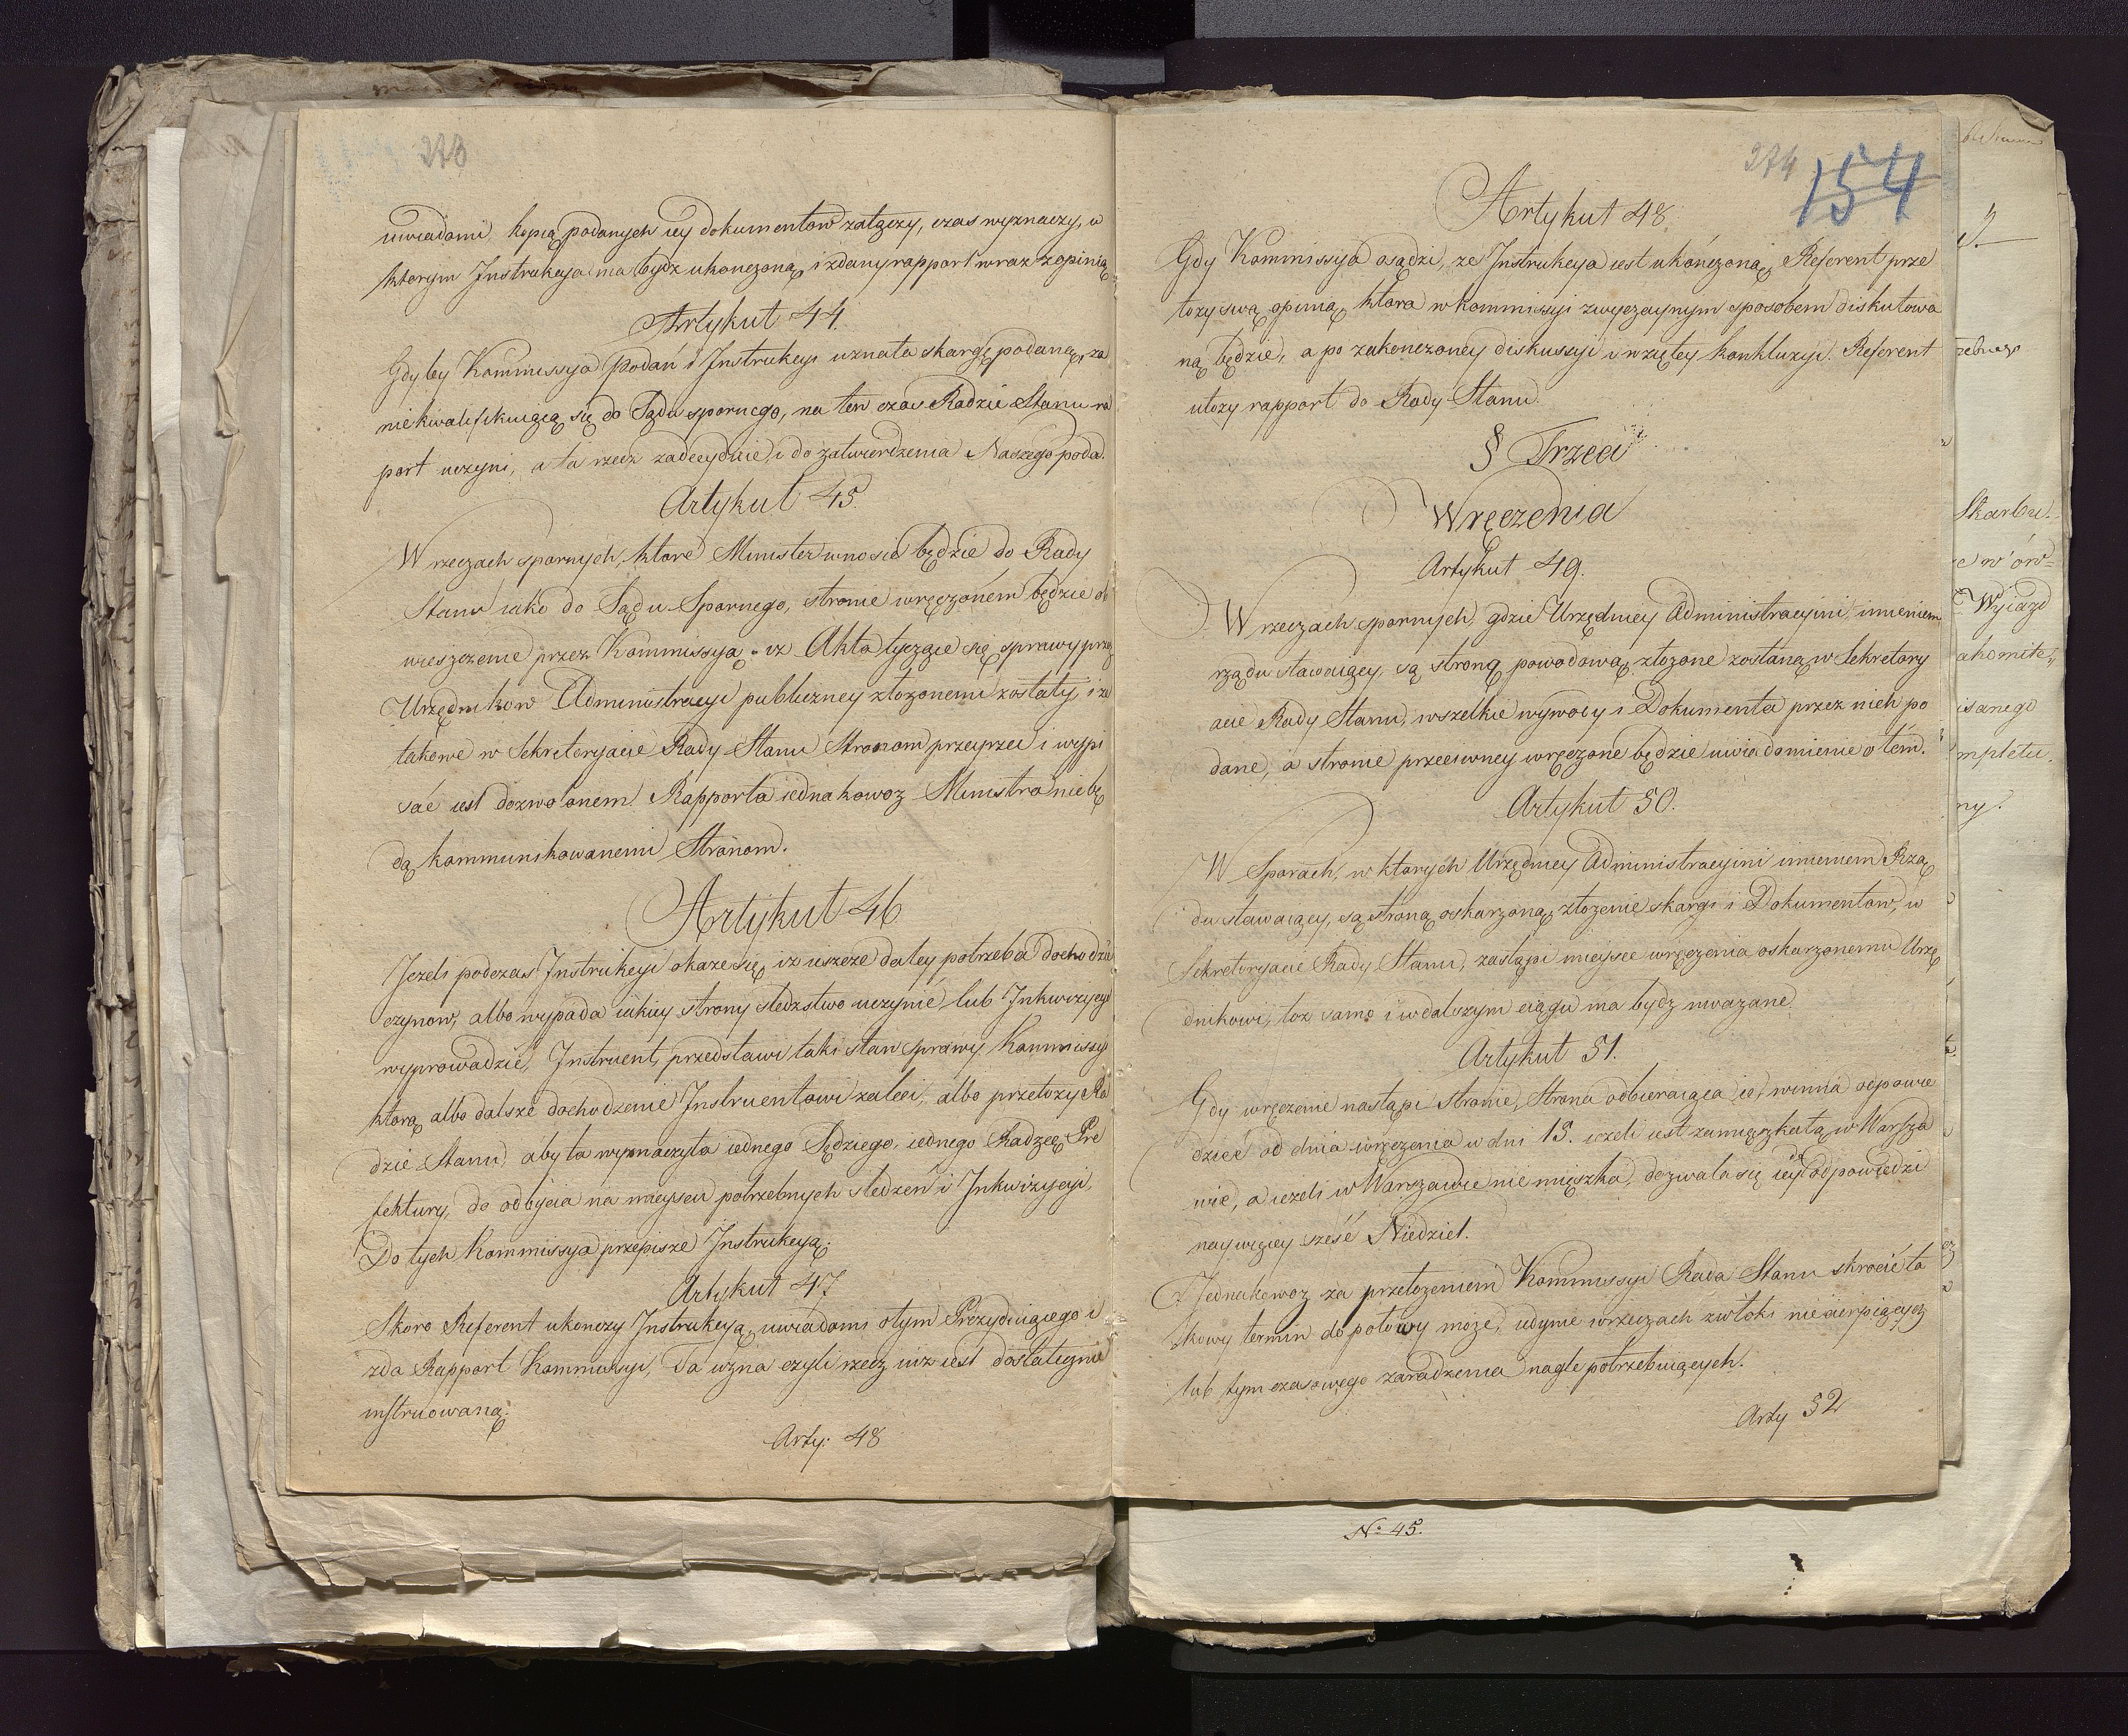 273
uwiadomi, kopią podanych iey dokumentow załączy, czas wyznaczy, w
ktorym Instrukcya ma bydz ukonczoną, i zdany rapport wraz z opinią
Artykuł 44.
Gdyby Kommissya Podań i Instrukcyi uznała skargę podaną, za
niekwalifikuiącą się do Sądu spornego, na ten czas Radzie Stanu ra
port uczyni, a ta rzecz zadecyduie, i do zatwierdzenia Naszego poda.
Artykuł 45.
W rzeczach spornych, ktore Minister wnosić będzie do Rady
Stanu iako do Sądu Spornego, stronie wręczoném będzie ob
wieszczenie przez Kommissyą, iz Akta tyczące się sprawy przez
Urzędnikow Administracyi publiczney złożonemi zostały, i ze
takowe w Sekreteryacie Rady Stanu Stronom przeyrzec i wypi
sać iest dozwolonem. Rapporta iednakowoz Ministra nie bę
dą kommunikowanemi Stronom.
Artykuł 46
Jezeli podczas Instrukcyi okaze się, iz ieszcze daley potrzeba dochodzić
czynow, albo wypada iakiey strony śledzstwo uczynić lub Inkwizycye
wyprowadzić, Instruent, przedstawi taki stan sprawy Kommissyi
ktorą albo dalsze dochodzenie Instruentowi zaleci, albo przełozy Ra
dzie Stanu aby ta wyznaczyła iednego Sędziego, iednego Radzcę Pre
fektury, do odbycia na mieyscu potrzebnych śledzeń i Inkwizycyi,
Do tych Kommissya przepisze Instrukcyą.
Artykuł 47
Skoro Referent ukonczy Instrukcyą, uwiadomi o tym Prezyduiącego i
zda Rapport Kommissyi, Ta uzna czyli rzecz iuz iest dostatecznie
instruowaną.
Arty: 48
274
154
Artykuł 48.
Gdy Kommissya osądzi, ze Instrukcya iest ukończoną, Referent prze
łozy swą opinią, ktora w kommissyi zwyczaynym sposobem diskutowa
ną będzie, a po zakończoney diskussyi i wziętey konkluzyi. Referent
ułozy rapport do Rady Stanu.
§ Trzeci
Wręczenia
Artykuł 49.
W rzeczach spornych, gdzie Urzędnicy Administracyini, imieniem
rządu stawaiący, są stroną powodową, złozone zostaną w Sekretery
acie Rady Stanu, wszelkie wywody i Dokumenta przez nich po
dane, a stronie przeciwney wręczone będzie uwiadomienie o tém.
Artykuł 50.
W Sporach, w ktorych Urzędnicy Administracyini imieniem Rzą
du stawaiący, są stroną oskarzoną, złozenie skargi i Dokumentow, w
Sekreteryacie Rady Stanu, zastąpi mieysce wręczenia oskarzonemu Urzę
dnikowi, toz samo i w dalszym ciągu ma bydz uwazane.
Artykuł 51.
Gdy wręczenie nastąpi stronie, Strona odbieraiąca ie, winna odpowie
dzieć od dnia wręczenia w dni 15. iezeli iest zamieszkałą w Warsza
wie, a iezeli w Warszawie nie mieszka, dozwala się iey do odpowiedzi
naywięcey sześć Niedziel.
Jednakowoz za przełozeniem Kommissyi Rada Stanu skrócić ta
kowy termin do połowy moze, iedynie w rzeczach zwłoki niecierpiących
lub tymczasowego zaradzenia nagle potrzebuiących.
Arty 52
№ 45.
Skarbu.
Wyiazd
isanego
mpletu.